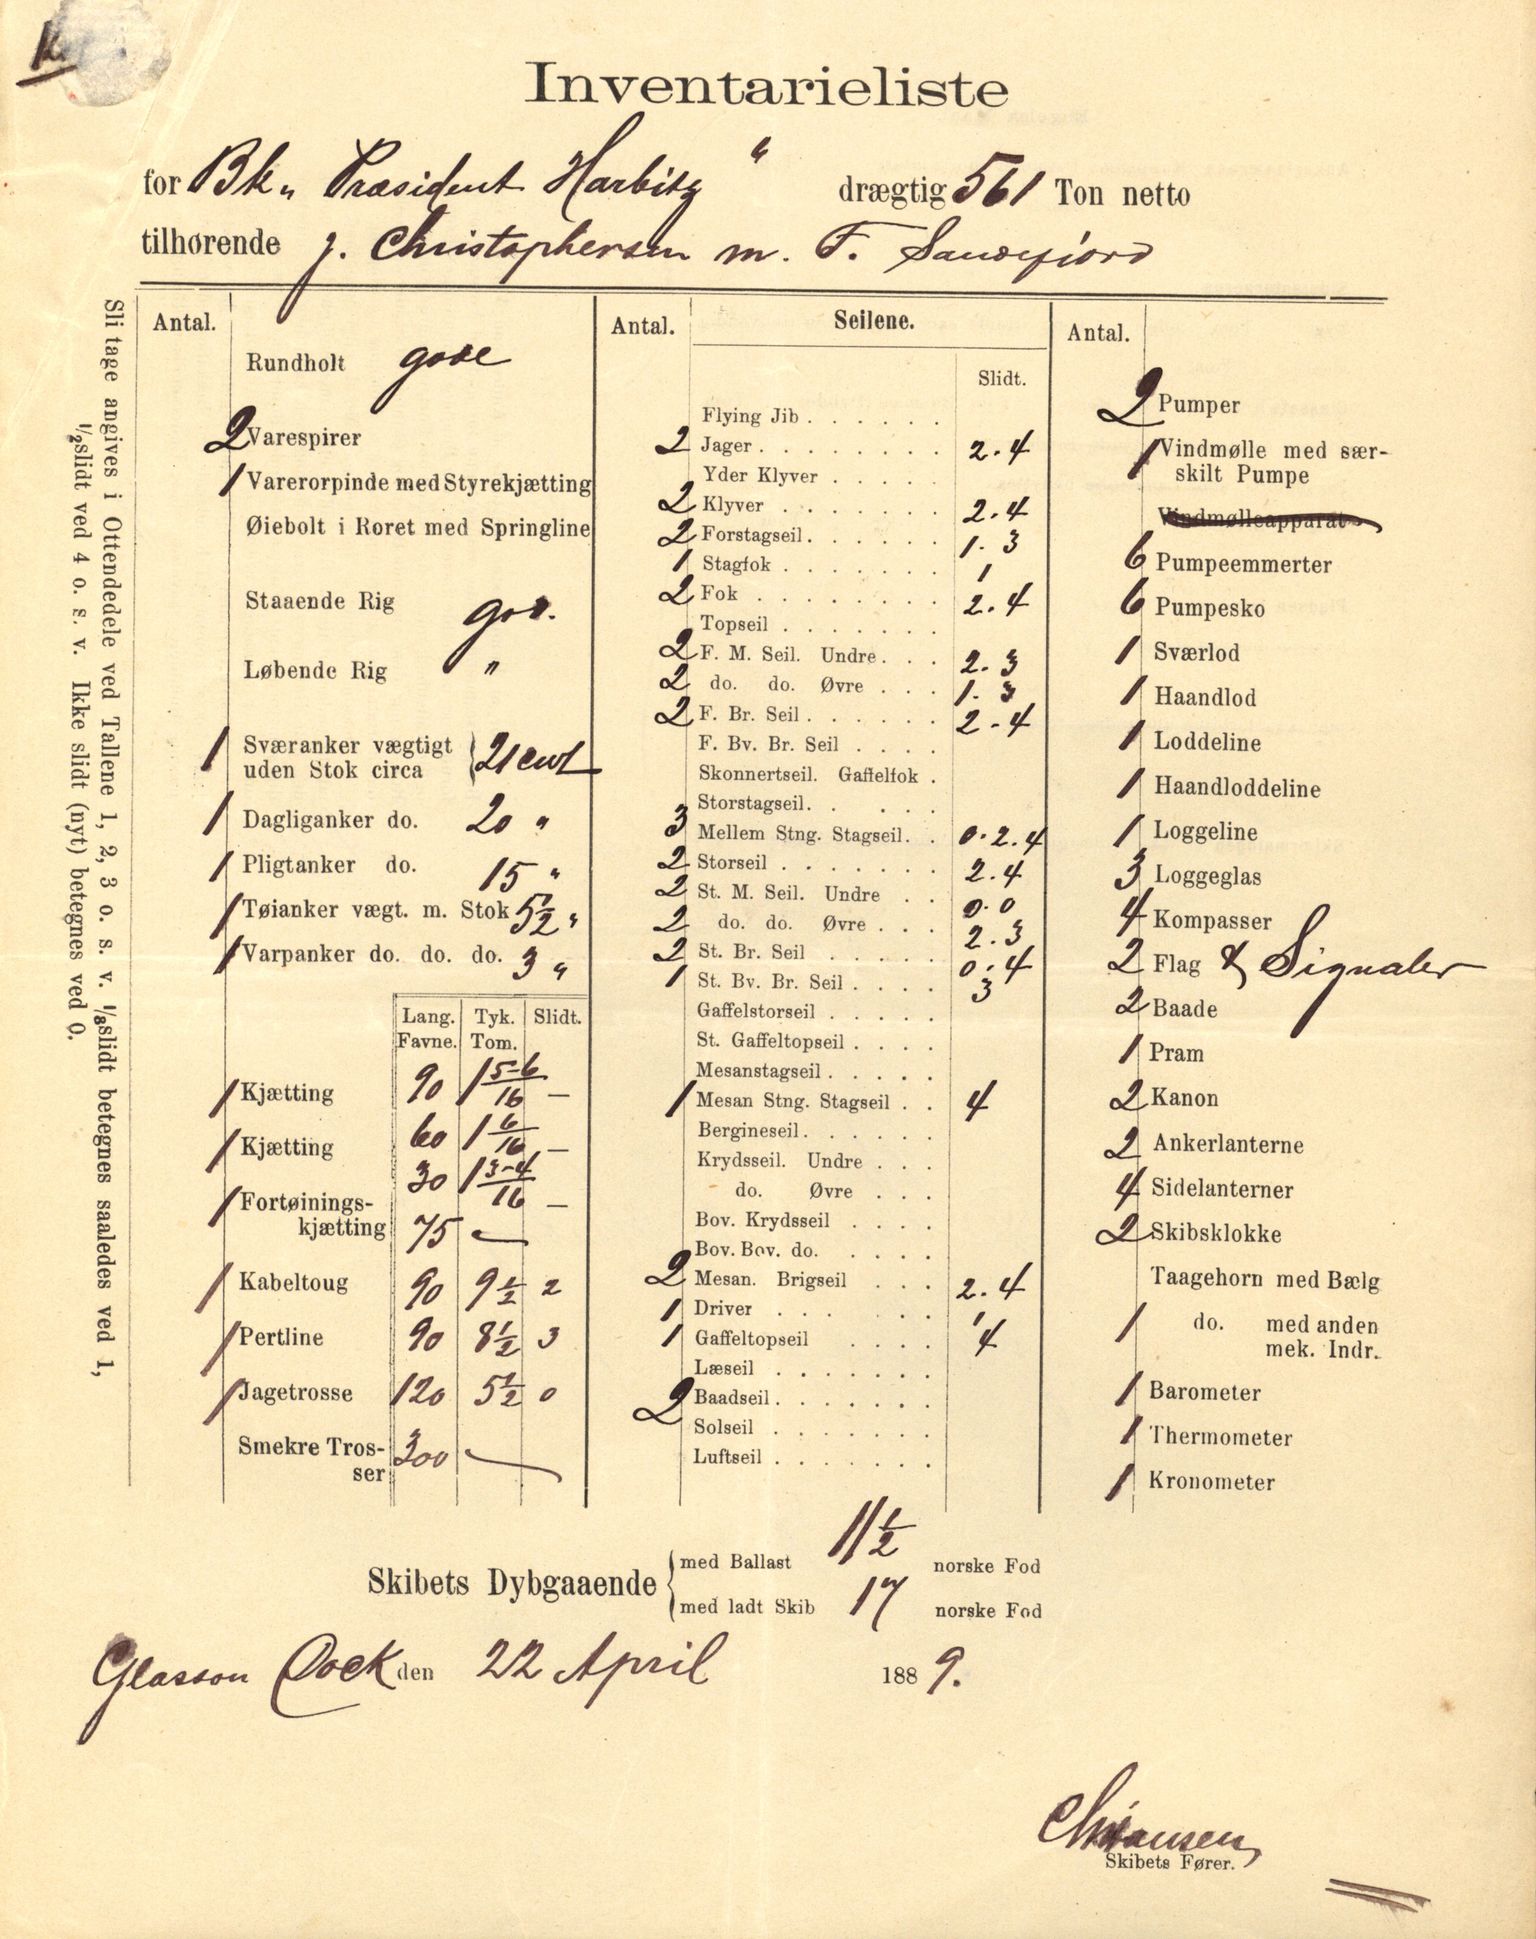 Inventarieliste
for Bk „ Præsident Harbitz " drægtig 561 Ton netto
tilhørende J. Christophersen m. F. Sandefjord
Sli tage angives i Ottendedele ved Tallene 1, 2, 3 o. s. v. 1/8 slidt betegnes saaledes ved 1,
1/2 slidt ved 4 o. s. v. Ikke slidt (nyt) betegnes ved 0.
Antal.
Rundholt gode
2 Varespirer
1 Varerorpinde med Styrekjætting
Øiebolt i Roret med Springline
Staaende Rig god.
Løbende Rig "
1 Sværanker vægtigt
uden Stok circa 21 cwt
1 Dagliganker do. 20 "
1 Pligtanker do. 15 "
1 Tøianker vægt. m. Stok 5 1/2 "
1 Varpanker do. do. do. 3 "
Lang. Tyk. Slidt.
Favne. Tom.
1 Kjætting 90 1 5-6/16 —
1 Kjætting 60 1 6/16 —
30 1 3-4/16 —
1 Fortøinings-
kjætting 75 —
1 Kabeltoug 90 9 1/2 2
1 Pertline 90 8 1/2 3
1 Jagetrosse 120 5 1/2 0
Smekre Tros-
ser 300 —
Antal. Seilene.
Slidt.
Flying Jib . . . . . .
2 Jager . . . . . . . . 2. 4
Yder Klyver . . . . .
2 Klyver . . . . . . . 2. 4
2 Forstagseil . . . . . . 1. 3
1 Stagfok . . . . . . . 1
2 Fok . . . . . . . . 2. 4
Topseil . . . . . . .
2 F. M. Seil. Undre . . . 2. 3
2 do. do. Øvre . . . 1. 3
2 F. Br. Seil . . . . . . 2 - 4
F. Bv. Br. Seil . . . .
Skonnertseil. Gaffelfok .
Storstagseil. . . . .
3 Mellem Stng. Stagseil. . 0. 2. 4
2 Storseil . . . . . . . 2. 4
2 St. M. Seil. Undre . . 0. 0
2 do. do. Øvre . . . 2. 3
2 St. Br. Seil . . . . . 0. 4
1 St. Bv. Br. Seil . . . . 3
Gaffelstorseil . . . . .
St. Gaffeltopseil . . . .
Mesanstagseil . . . . .
1 Mesan Stng. Stagseil . . 4
Bergineseil . . . . . .
Krydsseil. Undre . . .
do. Øvre . . .
Bov. Krydsseil . . . .
Bov. Bov. do. . . . .
2 Mesan. Brigseil . . . 2. 4
1 Driver . . . . . . 1
1 Gaffeltopseil . . . . 4
Læseil . . . . . . .
2 Baadseil . . . . . . .
Solseil . . . . . . .
Luftseil . . . . . . .
Antal.
2 Pumper
1 Vindmølle med sær-
skilt Pumpe
Vindmølleapparat
6 Pumpeemmerter
6 Pumpesko
1 Sværlod
1 Haandlod
1 Loddeline
1 Haandloddeline
1 Loggeline
3 Loggeglas
4 Kompasser
2 Flag & Signaler
2 Baade
1 Pram
2 Kanon
2 Ankerlanterne
4 Sidelanterner
2 Skibsklokke
Taagehorn med Bælg
1 do. med anden
mek. Indr.
1 Barometer
1 Thermometer
1 Kronometer
Skibets Dybgaaende
med Ballast 11 1/2 norske Fod
med ladt Skib 17 norske Fod
Glasson Dock den 22 April 1889.
Skibets Fører.